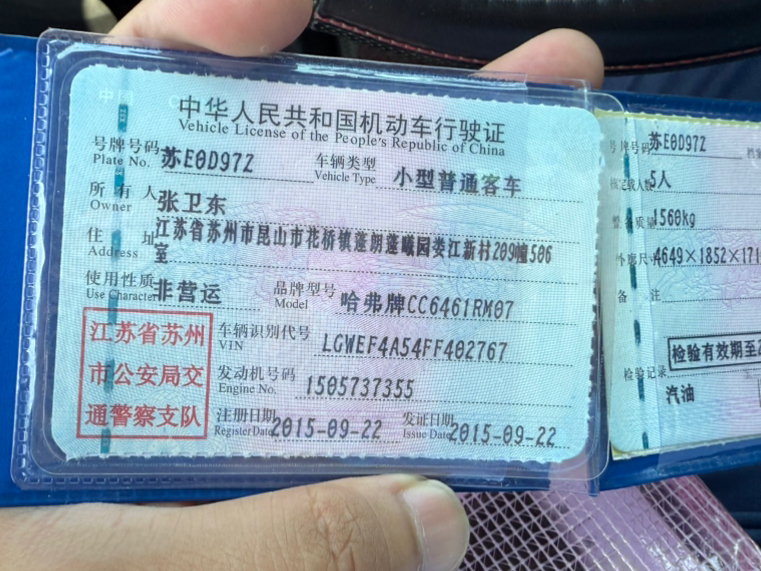 中华人民共和国机动车行驶证
Vehicle License of the People's Republic of China
号牌号码 苏E0D97Z 车辆类型 小型普通客车
Plate No. Vehicle Type
所有人 张卫东
Owner
住址 江苏省苏州市昆山市花桥镇蓬朗蓬曦园娄江新村209幢506
Address 室
使用性质 非营运 品牌型号 哈弗牌CC6461RM07
Use Character Model
江苏省苏州
市公安局交
通警察支队
车辆识别代号 LGWEF4A54FF402767
VIN
发动机号码 1505737355
Engine No.
注册日期 2015-09-22 发证日期 2015-09-22
Register Date Issue Date
号牌号码 苏E0D97Z
核定载人数 5人
整备质量 1560kg
外廓尺寸 4649×1852×171
备注
检验有效期至2
检验记录
汽油